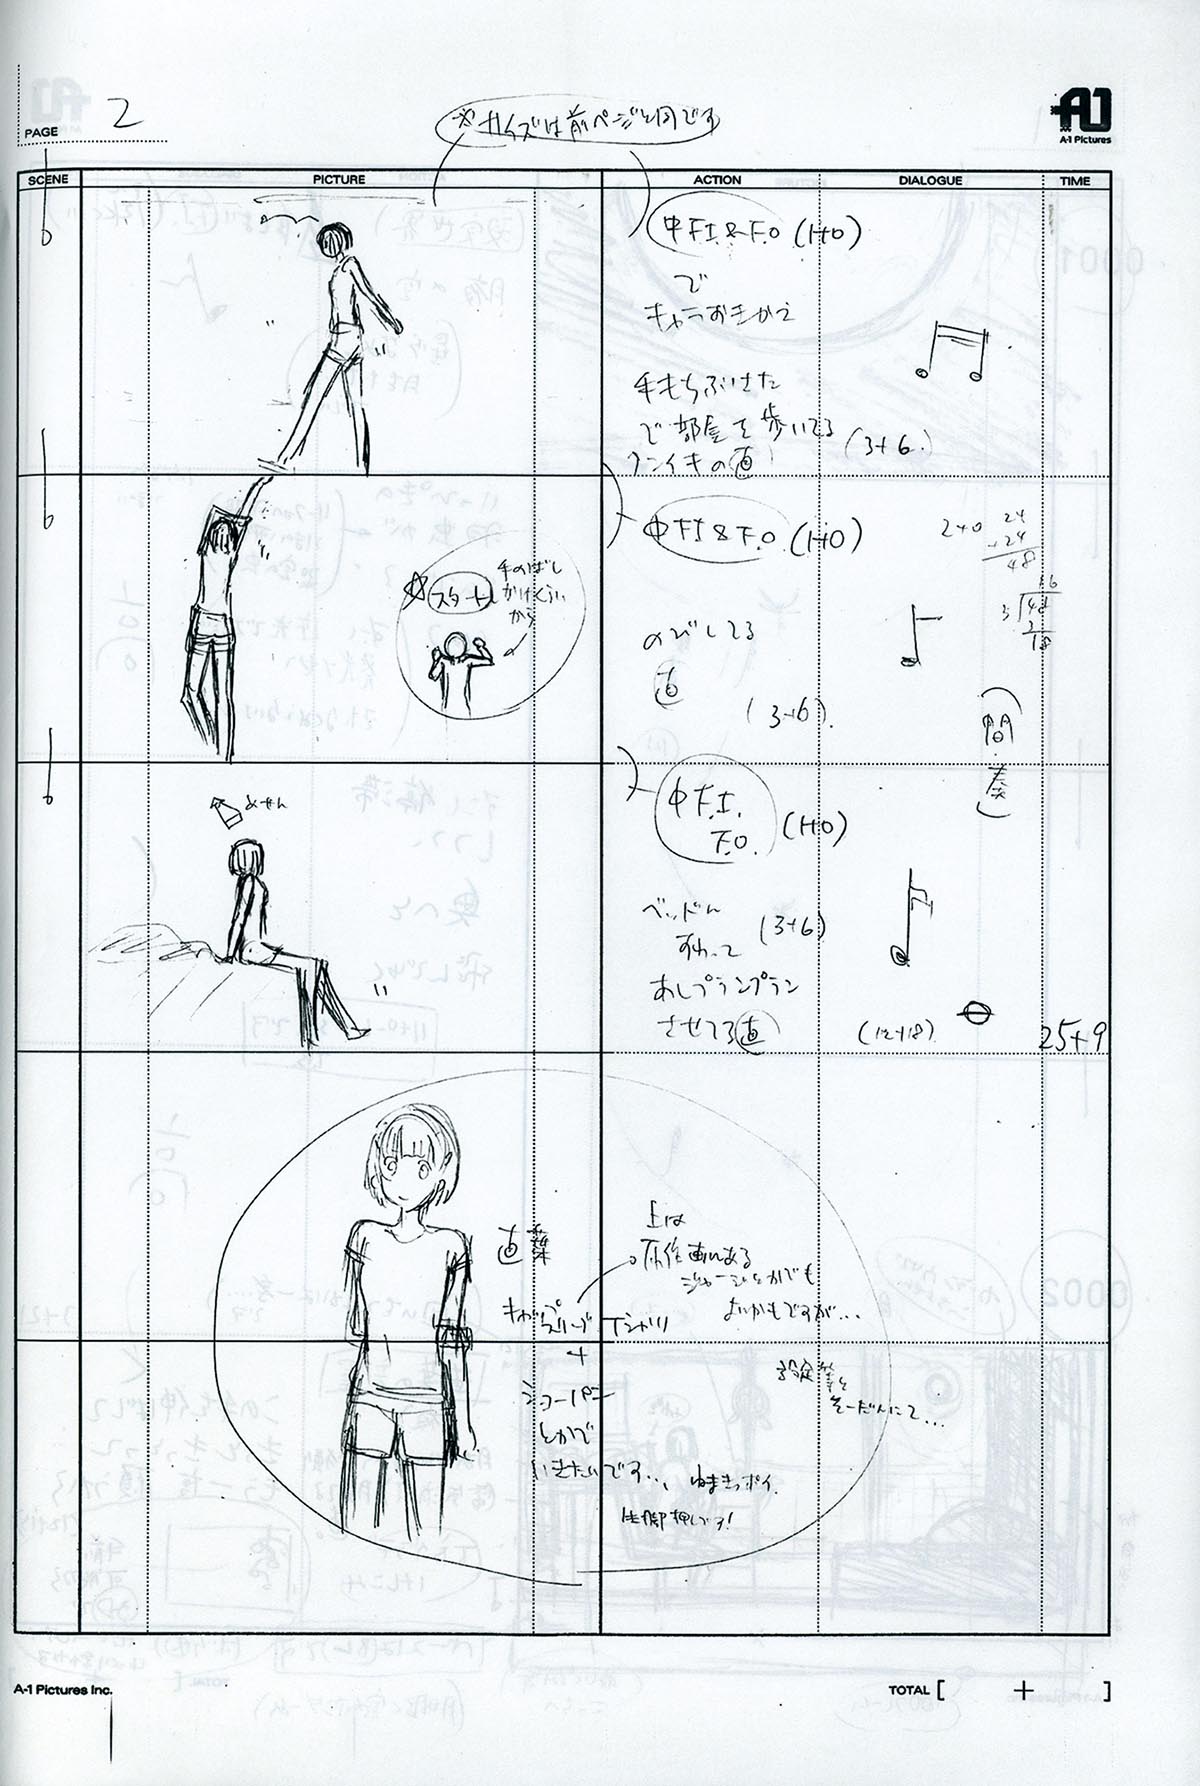 PAGE 2
※サイズは前ページと同です
A-1 Pictures
SCENE PICTURE ACTION DIALOGUE TIME
中F.I&F.O (1+0)
で
キャラおきかえ
手もちぶさた
で部屋を歩いてる
フンイキの直
(3+6)
中F.I&F.O (1+0)
のびしてる
直
(3+6)
スタート
手のばし
かけくらい
から
2+0
24
+24
48
16
3
48
3
18
(間奏)
めせん
中F.I.
F.O. (1+0)
ベッドに
すわって
(3+6)
あしプランプラン
させてる直
(12+18)
25+9
直葉
上は
原作画にある
ジャージとかでも
よいかもですが…
Tシャツ
+
ショーパン
とかで
いきたいです…
ねまきっポイ
生脚押しです!
設定等と
そーだんにて…
A-1 Pictures Inc.
TOTAL [ + ]